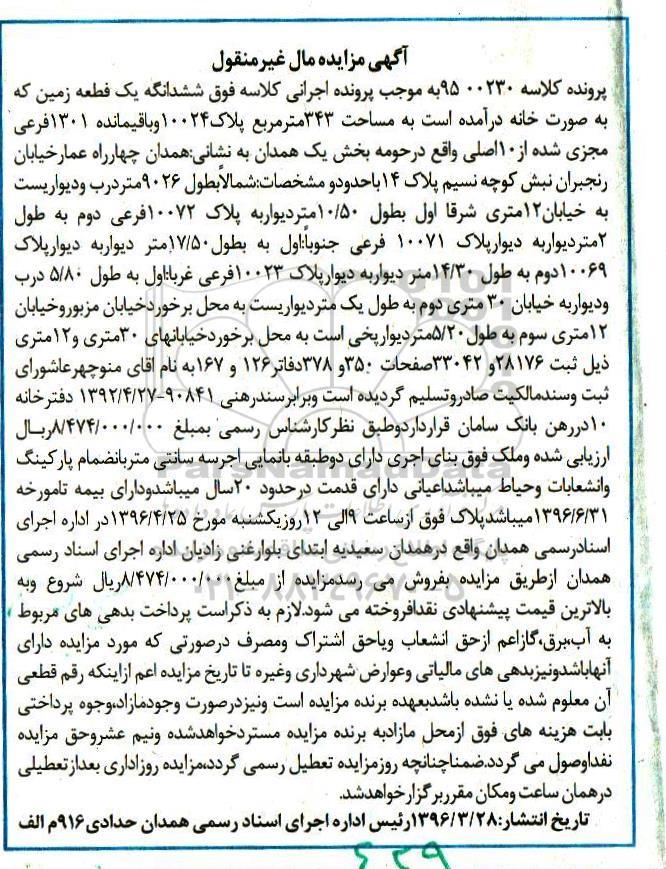 آگهی مزایده مال غیرمنقول
پرونده کلاسه ۹۵۰۰۲۳۰به موجب پرونده اجرائی کلاسه فوق ششدانگه یک قطعه زمین که
به صورت خانه درآمده است به مساحت ۳۴۳مترمربع پلاک۱۰۰۲۴وباقیمانده ۱۳۰۱فرعی
مجزی شده از۱۰اصلی واقع درحومه بخش یک همدان به نشانی:همدان چهارراه عمارخیابان
رنجبران نبش کوچه نسیم پلاک ۱۴باحدودو مشخصات:شمالأبطول ۹۰۲۶متردرب ودیواریست
به خیابان۱۲متری شرقا اول بطول ۱۰/۵۰متردیواربه پلاک ۱۰۰۷۲فرعی دوم به طول
۲متردیواربه دیوارپلاک ۱۰۰۷۱ فرعی جنوباً:اول به بطول۱۷/۵۰متر دیواربه دیوارپلاک
۱۰۰۶۹دوم به طول ۱۴/۳۰متر دیواربه دیوارپلاک ۱۰۰۲۳فرعی غربا:اول به طول ۵/۸۰ درب
ودیواربه خیابان ۳۰ متری دوم به طول یک متردیواریست به محل برخوردخیابان مزبوروخیابان
۱۲متری سوم به طول۵/۲۰متردیوارپخی است به محل برخوردخیابانهای ۳۰متری و۱۲متری
ذیل ثبت ۲۸۱۷۶و ۳۳۰۴۲صفحات ۳۵۰و ۳۷۸دفاتر۱۲۶ و ۱۶۷به نام آقای منوچهرعاشورای
ثبت وسندمالکیت صادروتسلیم گردیده است وبرابرسندرهنی ۹۰۸۴۱-۱۳۹۲/۴/۲۷ دفترخانه
۱۰دررهن بانک سامان قرارداردوطبق نظرکارشناس رسمی بمبلغ ۸/۴۷۴/۰۰۰/۰۰۰ریـال
ارزیابی شده وملک فوق بنای اجری دارای دوطبقه بانمایی اجرسه سانتی متربانضمام پارکینگ
وانشعابات وحیاط میباشداعیانی دارای قدمت درحدود ۲۰سال میباشدودارای بیمه تامورخه
۱۳۹۶/۶/۳۱میباشدپلاک فوق ازساعت ۹الی ۱۲روزیکشنبه مورخ ۱۳۹۶/۴/۲۵در اداره اجرای
اسنادرسمی همدان واقع درهمدان سعیدیه ابتدای بلوارغنی زادیان اداره اجرای اسناد رسمی
همدان ازطریق مزایده بفروش می رسدمزایده از مبلغ۸/۴۷۴/۰۰۰/۰۰۰ریال شروع وبه
بالاترین قیمت پیشنهادی نقدافروخته می شود.لازم به ذکراست پرداخت بدهی های مربوط
به آب،برق،گازاعم ازحق انشعاب ویاحق اشتراک ومصرف درصورتی که مورد مزایده دارای
آنهاباشدونیزبدهی های مالیاتی وعوارض شهرداری وغیره تا تاریخ مزایده اعم ازاینکه رقم قطعی
آن معلوم شده یا نشده باشدبعهده برنده مزایده است ونیزدرصورت وجودمازاد،وجوه پرداختی
بابت هزینه های فوق ازمحل مازادبه برنده مزایده مستردخواهدشده ونیم عشروحق مزایده
نقداوصول می گردد.ضمناچنانچه روزمزایده تعطیل رسمی گردد،مزایده روزاداری بعدازتعطیلی
درهمان ساعت ومکان مقرربرگزارخواهدشد.
تاریخ انتشار:۱۳۹۶/۳/۲۸رئیس اداره اجرای اسناد رسمی همدان حدادی۹۱۶م الف
ParsNamadData